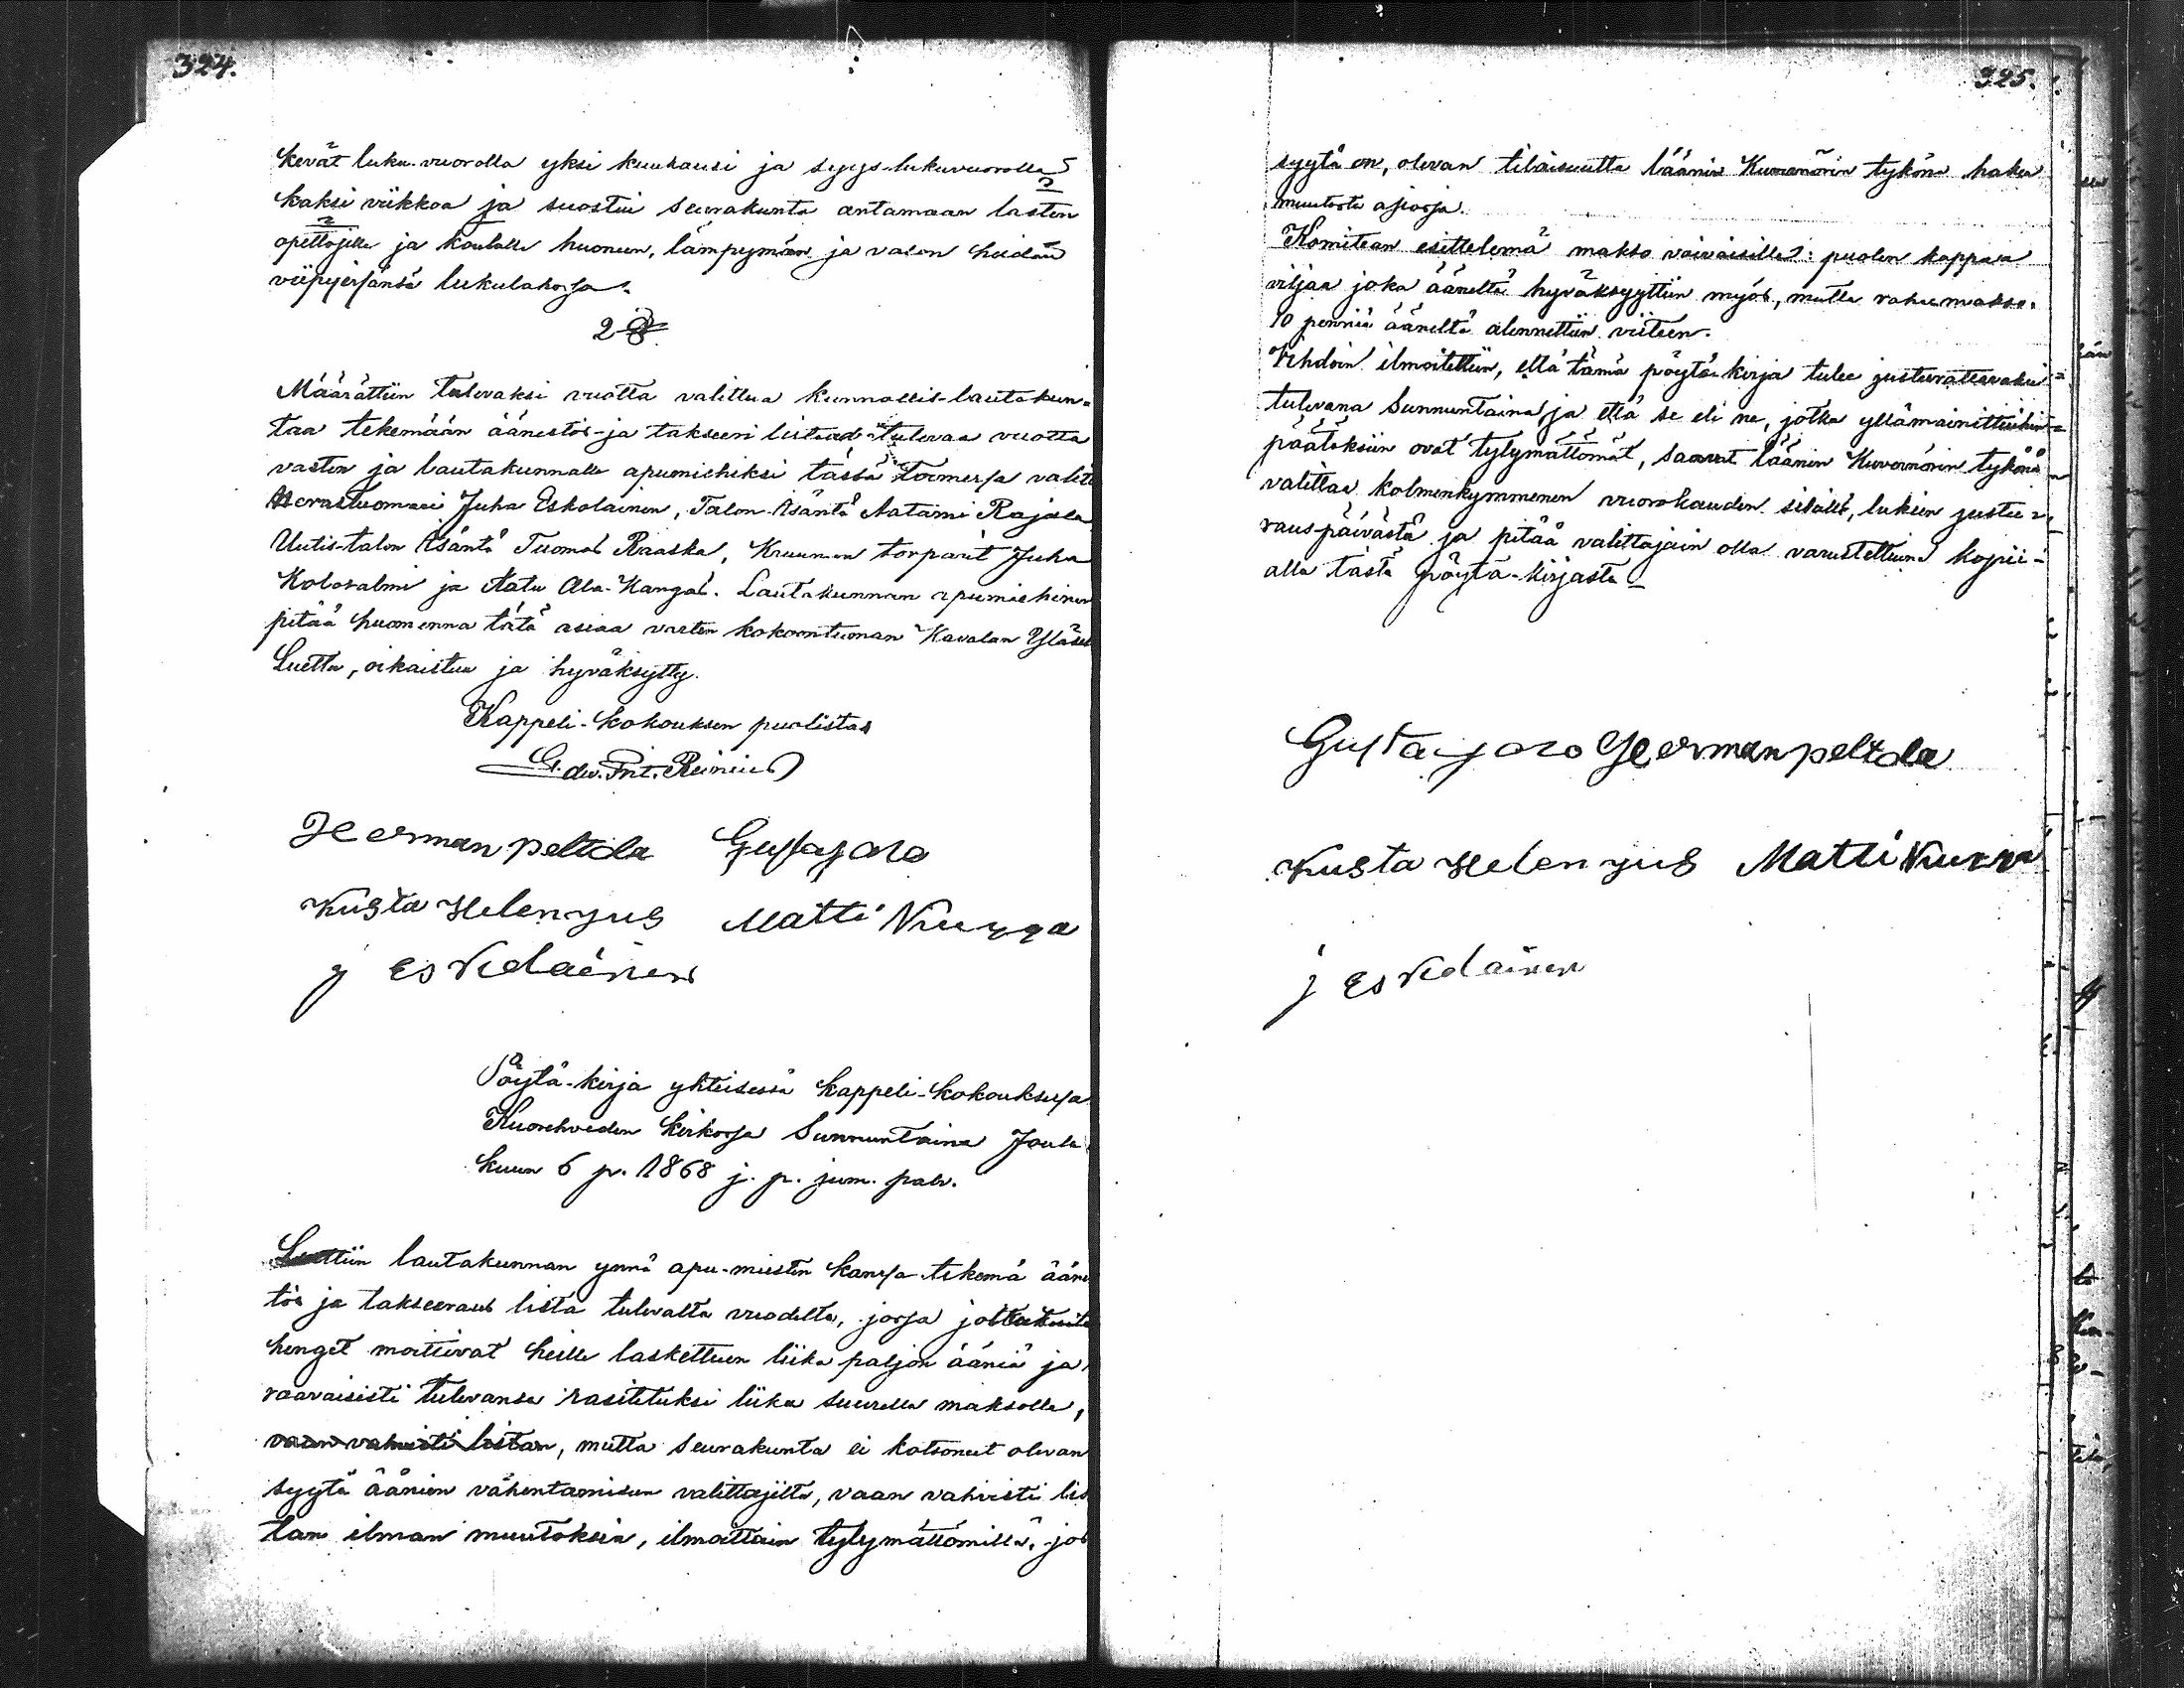 324.
kevät luku-vuorolla yksi kuukausi ja syys-lukuvuorolla
kaksi viikkoa ja suostui Seurakunta antamaan lasten
opettajille ja koululle huoneen, lämpymän ja valon heidän
viipyeisänsä lukulahossa.
2 §
Määrättiin tulevaksi vuotta valittua kunnallis-lautakun-
taa tekemään äänestös- ja takseeri listaa tulevaa vuotta
vasten ja lautakunnalle apumiehiksi tässä toimessa valiti
Herastuomari Juha Eskolainen, Talon-Isäntä Aatami Rajala
Uutis-talon Isäntä Tuomas Raaska, Kruunun torparit Juha
Kolosalmi ja Aatu Ala-Kangas. Lautakunnan apumiehinen
pitää huomenna tätä asiaa varten kokoontuman Kavalan
Luettu, oikaistu ja hyväksytty.
Kappeli-kokouksen puolistas
G. Reinius
Herman peltola Gustajara
Kusta Helenyus Matti Kurra
j Eskolainen
Pöytä-kirja yhteisessä Kappeli-kokouksessa
Kuorehveden kirkossa Sunnuntaina Joulu
kuun 6 p. 1868 j. p. jum. palv.
Luettiin lautakunnan ynnä apu-miesten kanssa tekemä ääne
tös ja takseeraus lista tulevalta vuodelta, jossa
henget moittivat heille laskettuun liika paljon ääniä ja
vaavaisisti tulevansa rasitetuksi liika suurella maksolla,
vaan vahvisti listan, mutta Seurakunta ei katsonut olevan
syytä äänien vähentämiseen valittajilta, vaan vahvisti lis
tan ilman muutoksia, ilmoittain tytymättömillä, jos
325.
syytä on, olevan tilaisuutta läänin Kuvernörin tykönä hakea
muutosta asiassa.
Komitean esittelemä makso vaivaisille: puolen kappaa
viljaa joka ääneltä hyväksyttiin myös, mutta raha makso.
10 penniä ääneltä alennettiin viiteen.
Vihdoin ilmoitettiin, että tämä pöytä-kirja tulee justeerattavaksi
tulevana Sunnuntaina ja että se eli ne, jotka yllämainittuihin
päätöksiin ovat tytymättömät, saavat läänin Kuvernörin tykönä
valittaa kolmenkymmenen vuorokauden sisällä, lukien justee-
raus-päivästä ja pitää valittajain olla varustettuna kopii-
alla tästä pöytä-kirjasta
Gustajara Herman peltola
Kusta Helenyus Matti Kurra
j Eskolainen